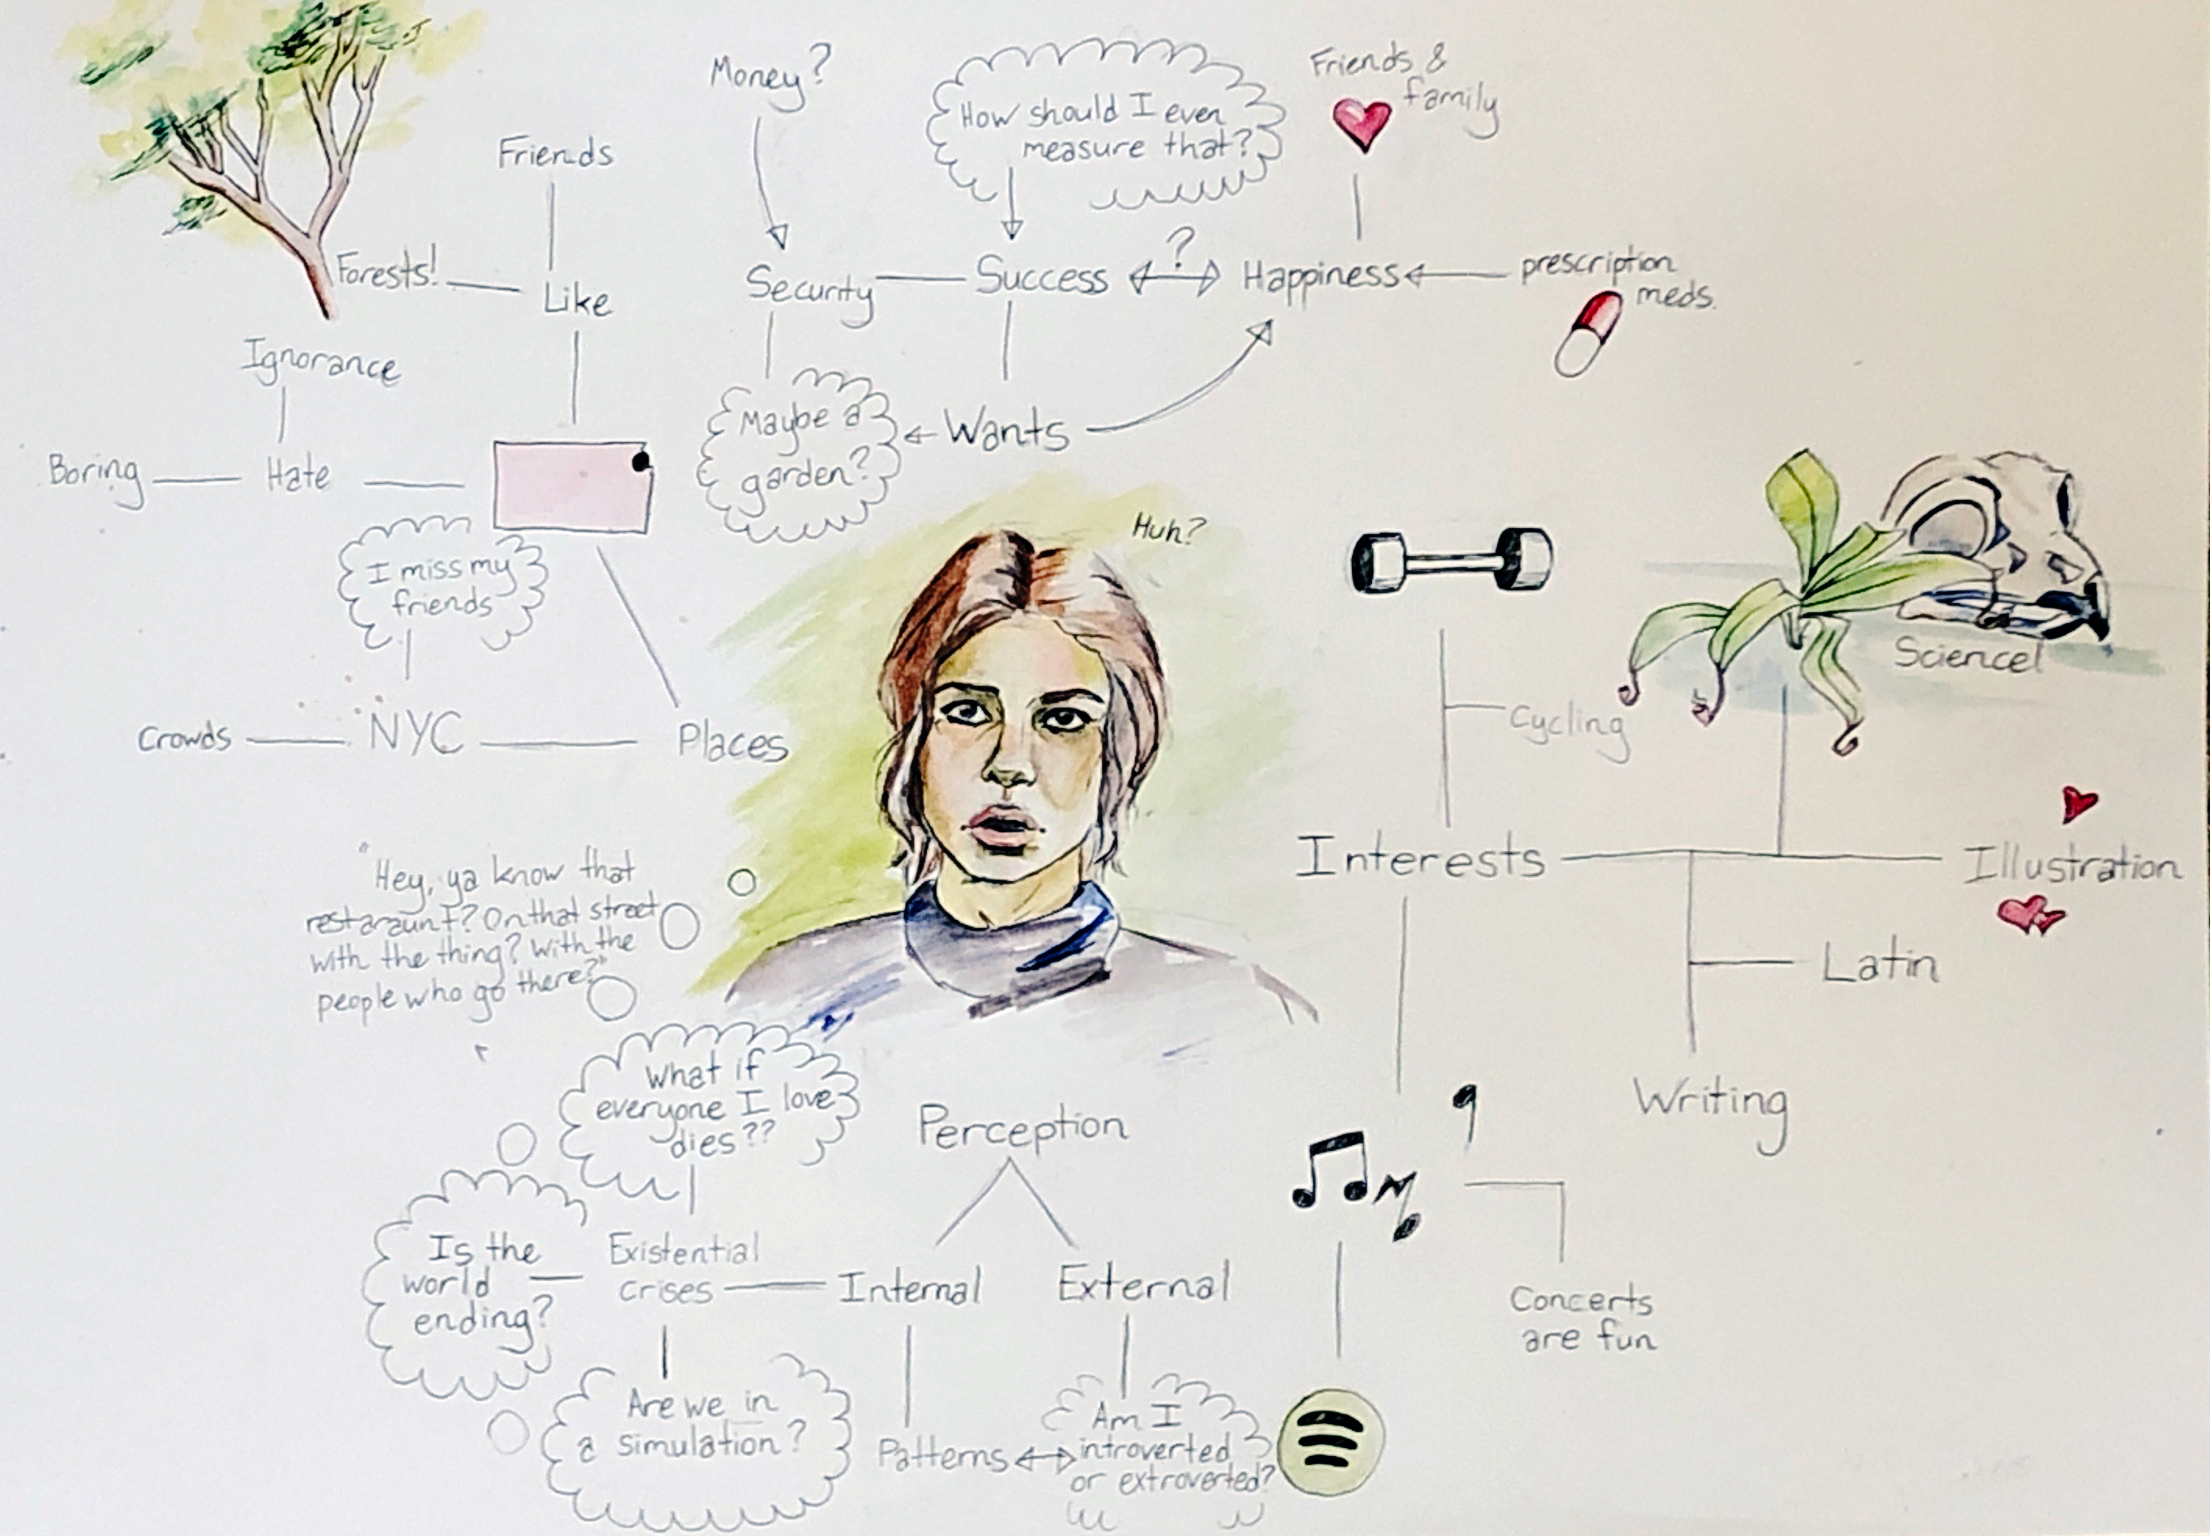 Money?
How should I even
measure that?
Friends &
family
Friends
Forests!
Like
Security
Success
?
Happiness
prescription
meds.
Ignorance
Boring
Hate
Maybe a
garden?
Wants
Huh?
I miss my
friends
Crowds
NYC
Places
Cycling
Science!
Interests
Illustration
Latin
Writing
"Hey, ya know that
restaraunt? On that street
with the thing? With the
people who go there?"
What if
everyone I love
dies??
Perception
Is the
world
ending?
Existential
crises
Internal
External
Concerts
are fun
Are we in
a simulation?
Patterns
Am I
introverted
or extroverted?